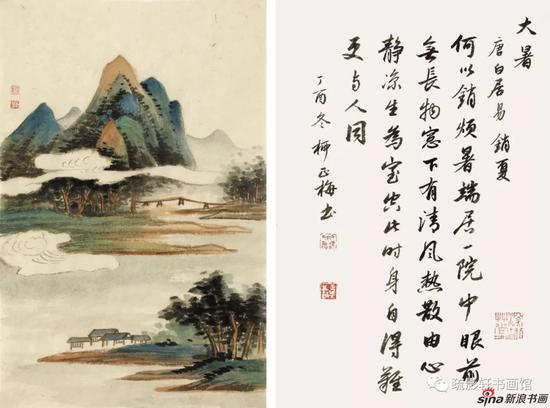 大暑
唐白居易 銷夏
何以銷煩暑端居一院中眼前
無長物窓下有清风熱散由心
静凉生為室空此时身自得難
更与人同
丁酉冬柳正梅书
疏影轩书画馆
sina新浪书画